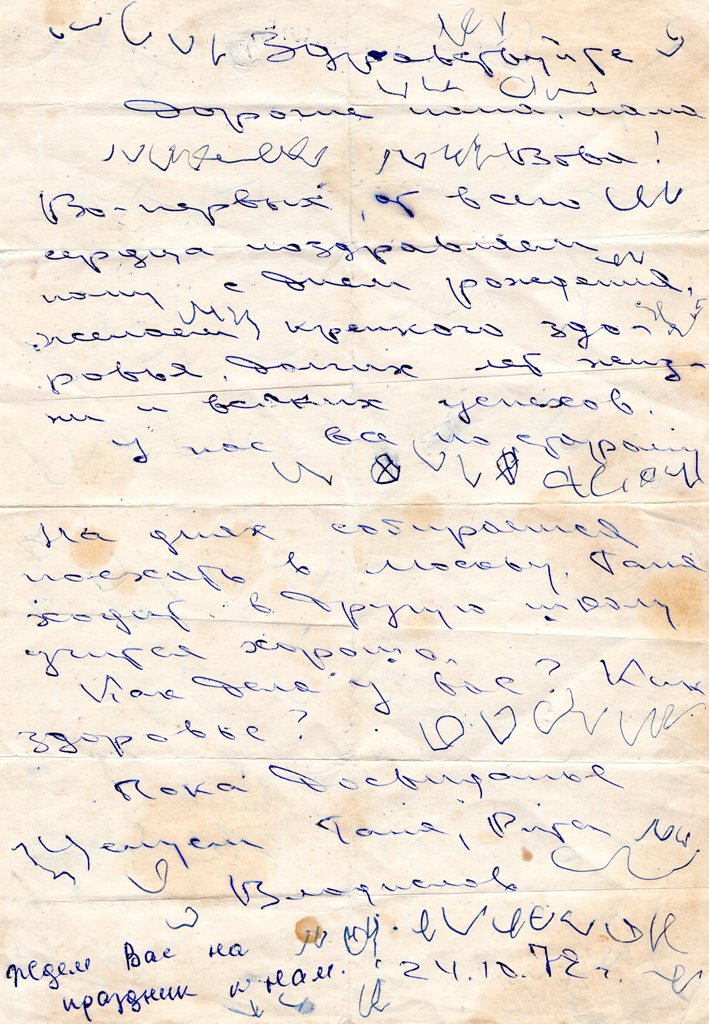 Здравствуйте
Дорогие папа, мама
Вова!
Во-первых, от всего
сердца поздравляем
папу с днем рождения,
желаем крепкого здо-
ровья, долгих лет жиз-
ни и всяких успехов.
У нас все по старому
На днях собираемся
поехать в Москву, Таня
ходит в другую школу
учится хорошо.
Как дела у вас? Как
здоровье?
Пока Досвиданья
Целуем Таня, Рита
Владислав
Ждем Вас на
праздник к нам.
24.10.72 г.